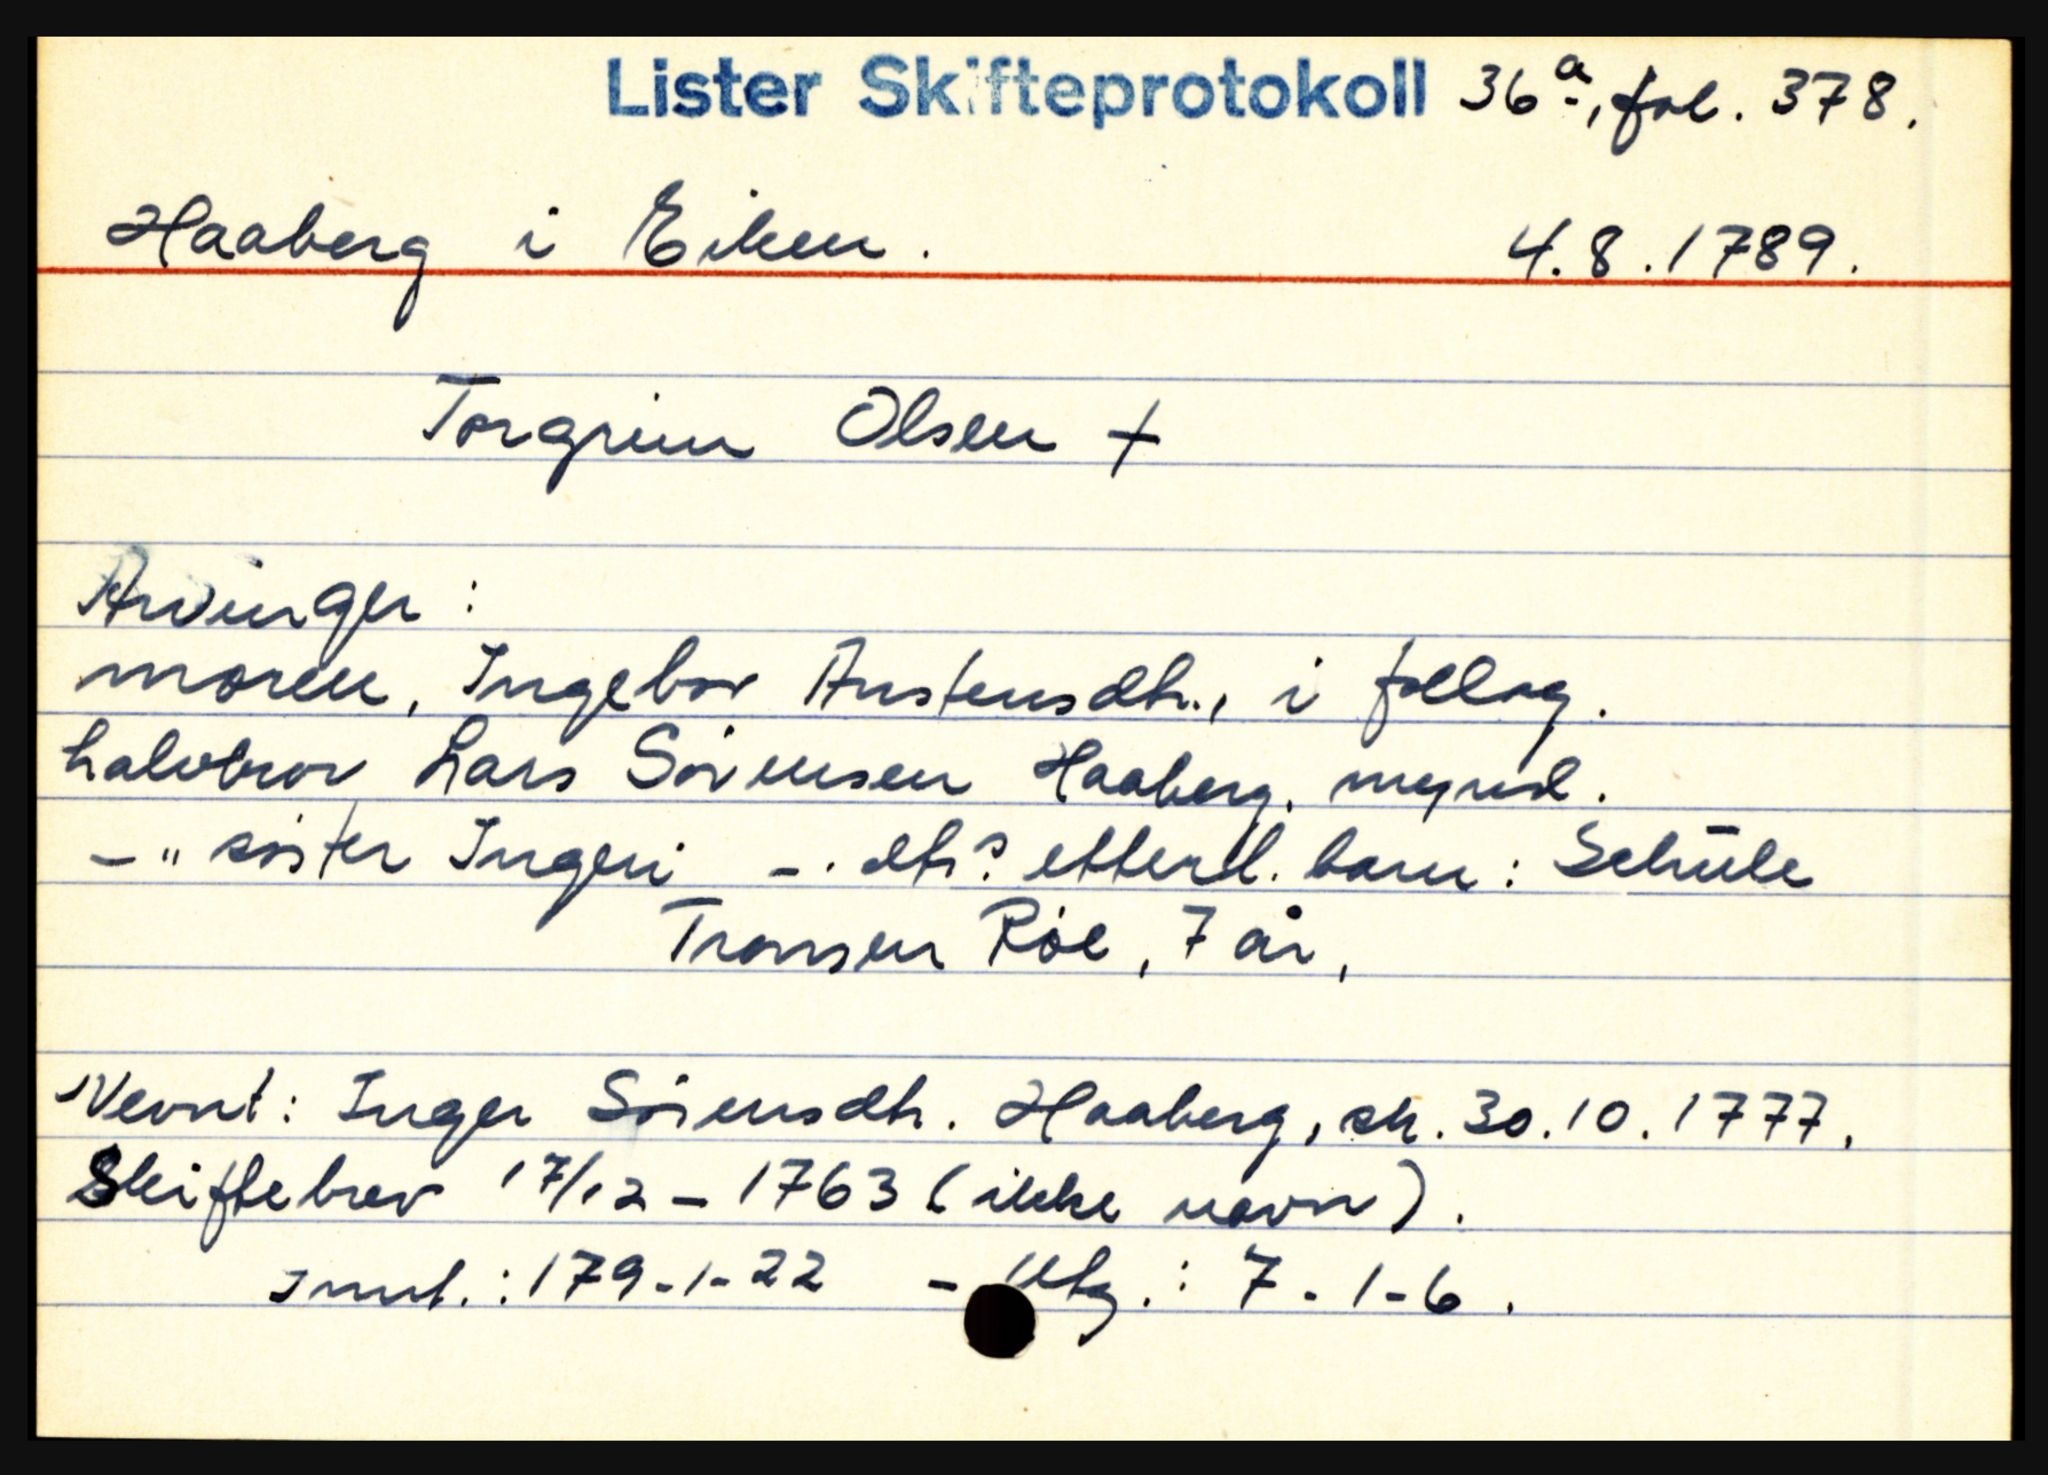 Lister Skifteprotokoll 36a, fol. 378.
Haaberg i Eiken. 4.8.1789.
Torgrim Olsen +
Arvinger:
moren, Ingebor Anstensdtr., i fellsg.
halvbror Lars Sørensen Haaberg, mynd.
-"- søster Ingeri -. dtr? etterl. barn: Schüle
Tronsen Røe, 7 år,
Nevnt: Inger Sørensdtr. Haaberg, sk. 30.10.1777,
Skiftebrev 17/12 - 1763 (ikke navn).
Innt.: 179-1-22 - Utg.: 7-1-6.